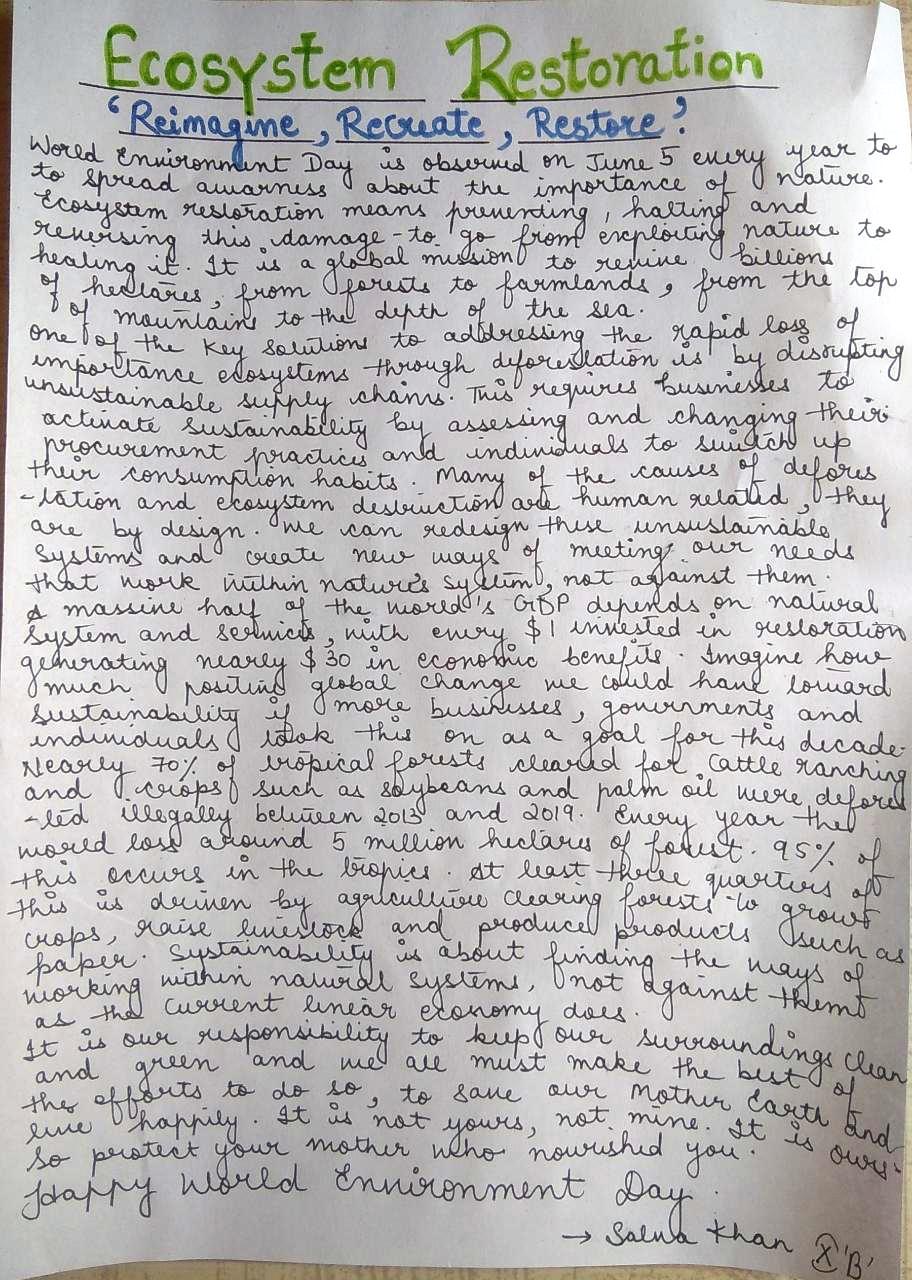 Ecosystem Restoration
'Reimagine, Recreate, Restore'.
World Environment Day is observed on June 5 every year to
to spread awarness about the importance of nature.
Ecosystem restoration means preventing, halting and
reversing this damage - to go from exploiting nature to
healing it. It is a global mission to revive billions
of hectares, from forests to farmlands, from the top
of mountains to the depth of the sea.
one of the key solutions to addressing the rapid loss of
importance ecosystems through deforestation is by disrupting
unsustainable supply chains. This requires businesses to
activate sustainability by assessing and changing their
procurement practices and individuals to switch up
their consumption habits. Many of the causes of defores
-tation and ecosystem destruction are human related, they
are by design. we can redesign these unsustainable
systems and create new ways of meeting our needs
that work within nature's system, not against them.
A massive half of the world's GDP depends on natural
system and services, with every $1 invested in restoration
generating nearly $30 in economic benefits. Imagine how
much positive global change we could have toward
sustainability if more businesses, governments and
individuals took this on as a goal for this decade.
Nearly 70% of tropical forests cleared for cattle ranching
and crops such as soybeans and palm oil were defores
-ted illegally between 2013 and 2019. Every year the
world loss around 5 million hectares of forest. 95% of
this occurs in the tropics. At least three quarters of
this is driven by agriculture clearing forests to grow
crops, raise livestock and produce products such as
paper. Sustainability is about finding the ways of
working within natural systems, not against them
as the current linear economy does.
It is our responsibility to keep our surroundings clean
and green and we all must make the best of
the efforts to do so, to save our Mother Earth and
live happily. It is not yours, not mine. It is ours.
So protect your mother who nourished you.
Happy World Environment Day.
→ Salwa Khan X 'B'